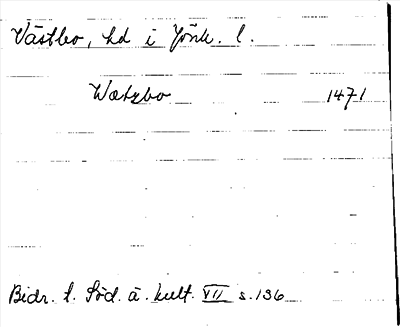 Västbo, hd i Jönk. l.
Wætzbo 1471
Bidr. t. Söd. ä. kult. VII s. 136